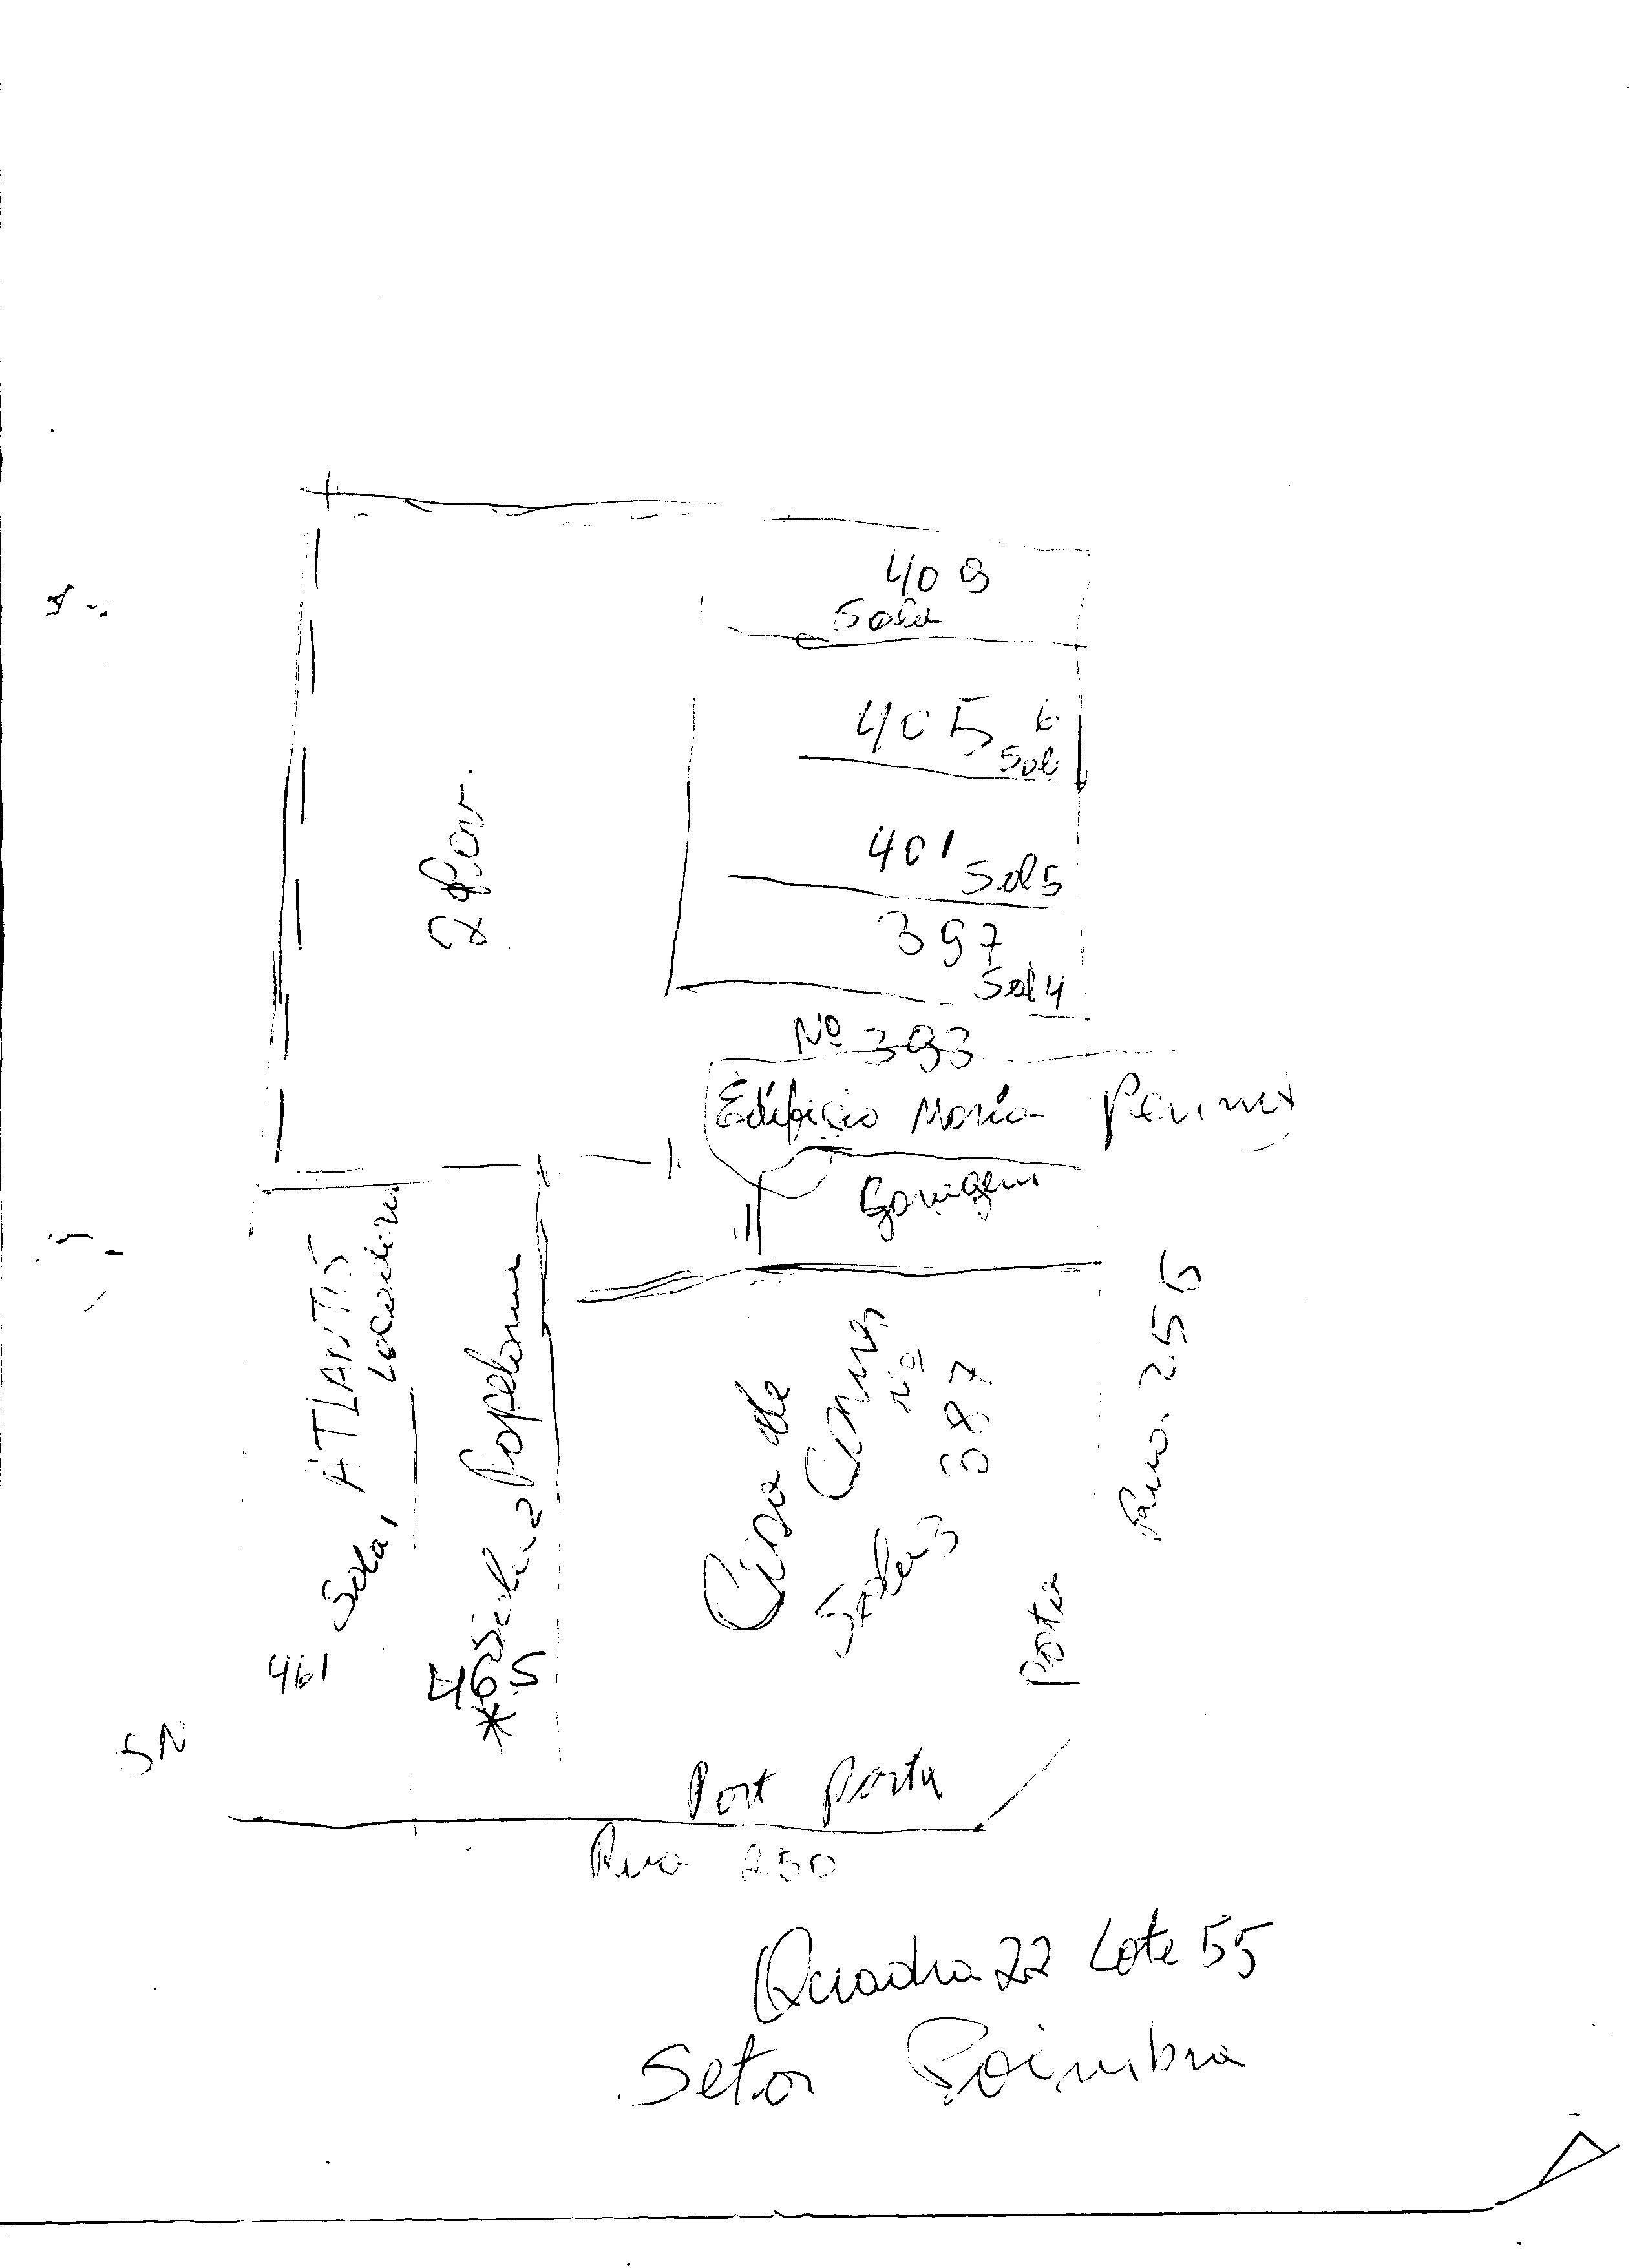 409
Sala
405 6
Sal
401
Sal 5
397
Sal 4
2 Pav.
Nº 393
Edifício Maria
Garagem
ATLANTIS
Locadora
Sala 1
461
Papelaria
Sala 2
465
*
Casa de
Carnes
Nº
387
Sala 3
Rua 255
Porta
SN
Port Porta
Rua 250
Quadra 22 Lote 55
Setor Coimbra